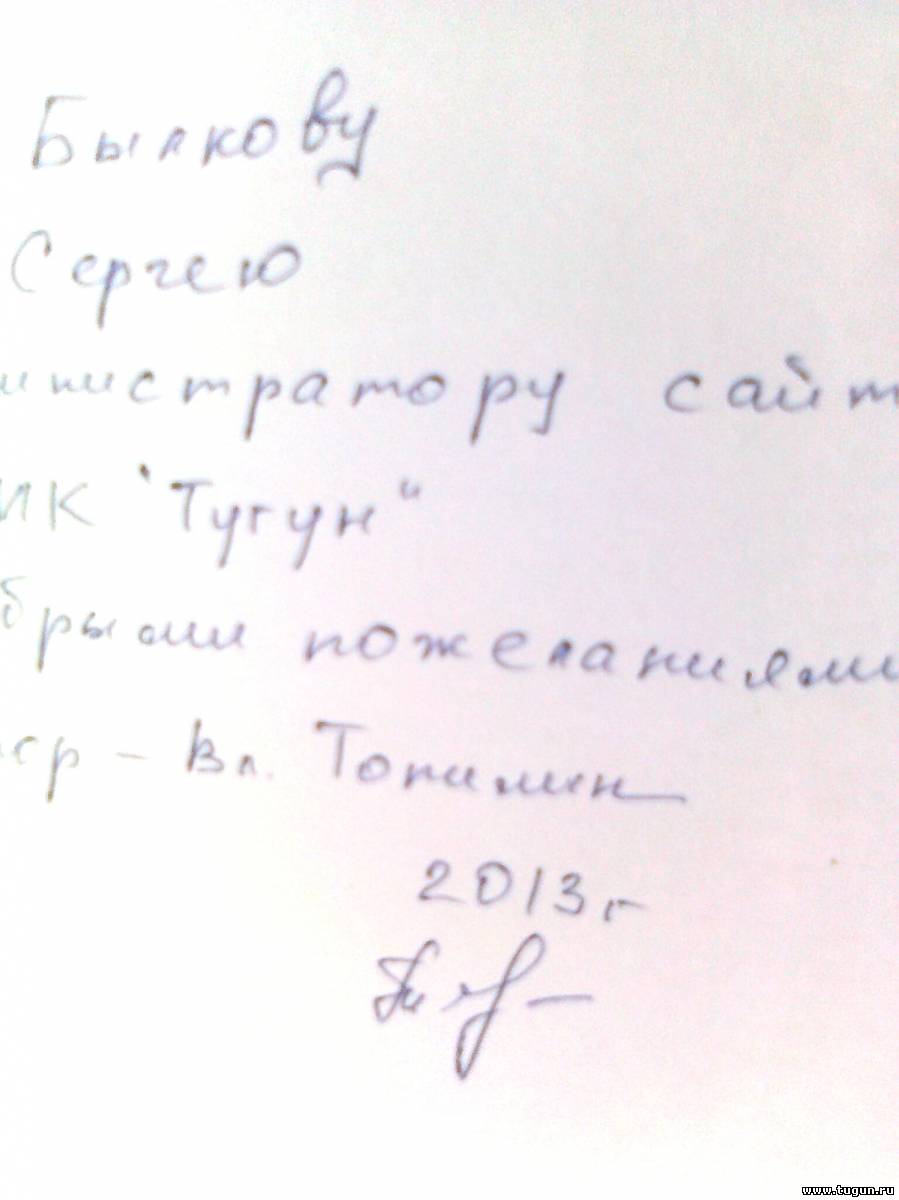 Былкову
Сергею
инистратору сайт
ИК "Тугун"
брыми пожеланиями
Вл. Топилин
2013г
www.tugun.ru